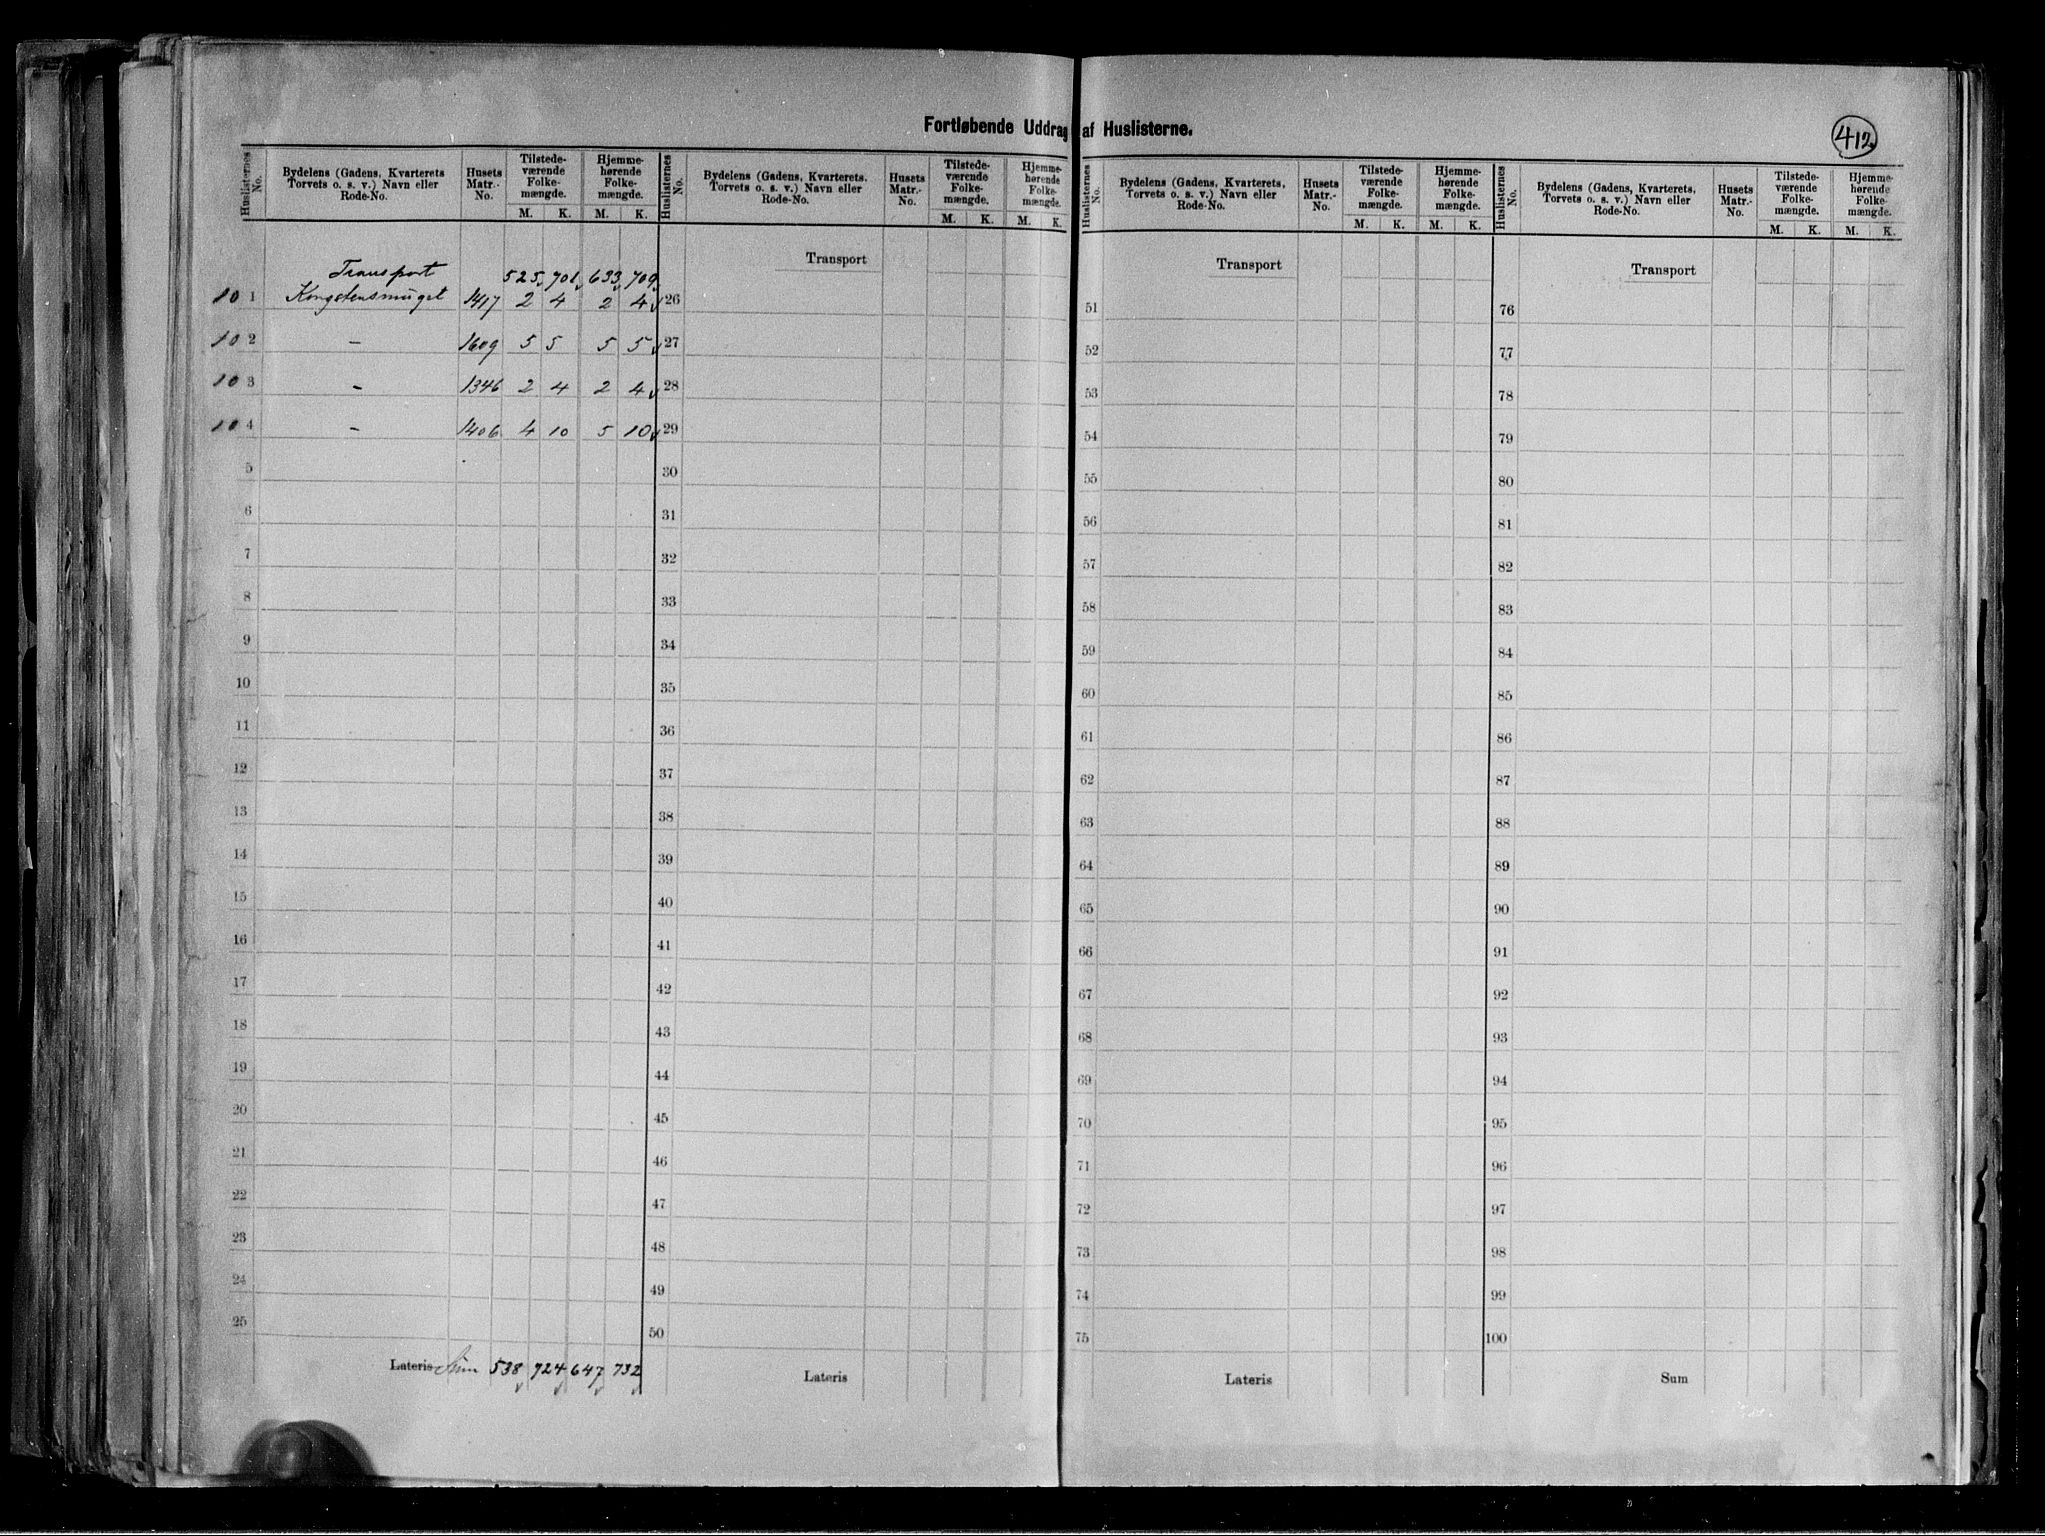 Fortløbende Uddrag af Huslisterne.
412.
Huslisternes No. Bydelens (Gadens, Kvarterets Torvets o. s. v.) Navn eller Rode-No. Husets Matr.-No. Tilstedeværende Folkemængde. M. K. Hjemmehørende Folkemængde. M. K.
Transport 525 701 633 709
101 Kongstensmuget 1417 2 4 2 4
102 – 1609 5 5 5 5
103 – 1346 2 4 2 4
104 – 1406 4 10 5 10
5
6
7
8
9
10
11
12
13
14
15
16
17
18
19
20
21
22
23
24
25
Lateris Sum 538 724 647 732
Huslisternes No. Bydelens (Gadens, Kvarterets, Torvets o. s. v.) Navn eller Rode-No. Husets Matr.-No. Tilstedeværende Folkemængde. M. K. Hjemmehørende Folkemængde. M. K.
Transport
26
27
28
29
30
31
32
33
34
35
36
37
38
39
40
41
42
43
44
45
46
47
48
49
50
Lateris
Huslisternes No. Bydelens (Gadens, Kvarterets, Torvets o. s. v.) Navn eller Rode-No. Husets Matr.-No. Tilstedeværende Folkemængde. M. K. Hjemmehørende Folkemængde. M. K.
Transport
51
52
53
54
55
56
57
58
59
60
61
62
63
64
65
66
67
68
69
70
71
72
73
74
75
Lateris
Huslisternes No. Bydelens (Gadens, Kvarterets, Torvets o. s. v.) Navn eller Rode-No. Husets Matr.-No. Tilstedeværende Folkemængde. M. K. Hjemmehørende Folkemængde. M. K.
Transport
76
77
78
79
80
81
82
83
84
85
86
87
88
89
90
91
92
93
94
95
96
97
98
99
100
Sum